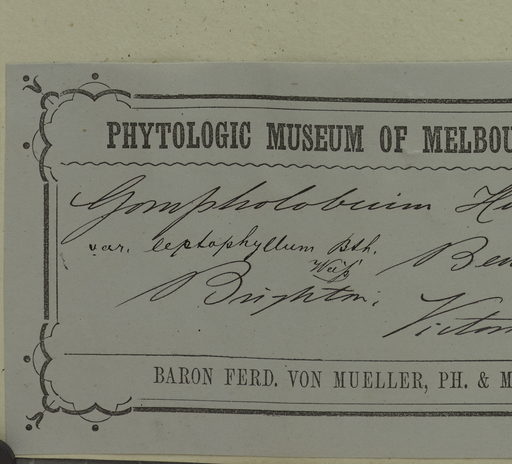 PHYTOLOGIC MUSEUM OF MELBOU
Gompholobium Hu
var. leptophyllum Bth.
Ben
Brighton;
Victor
BARON FERD. VON MUELLER, PH. & M